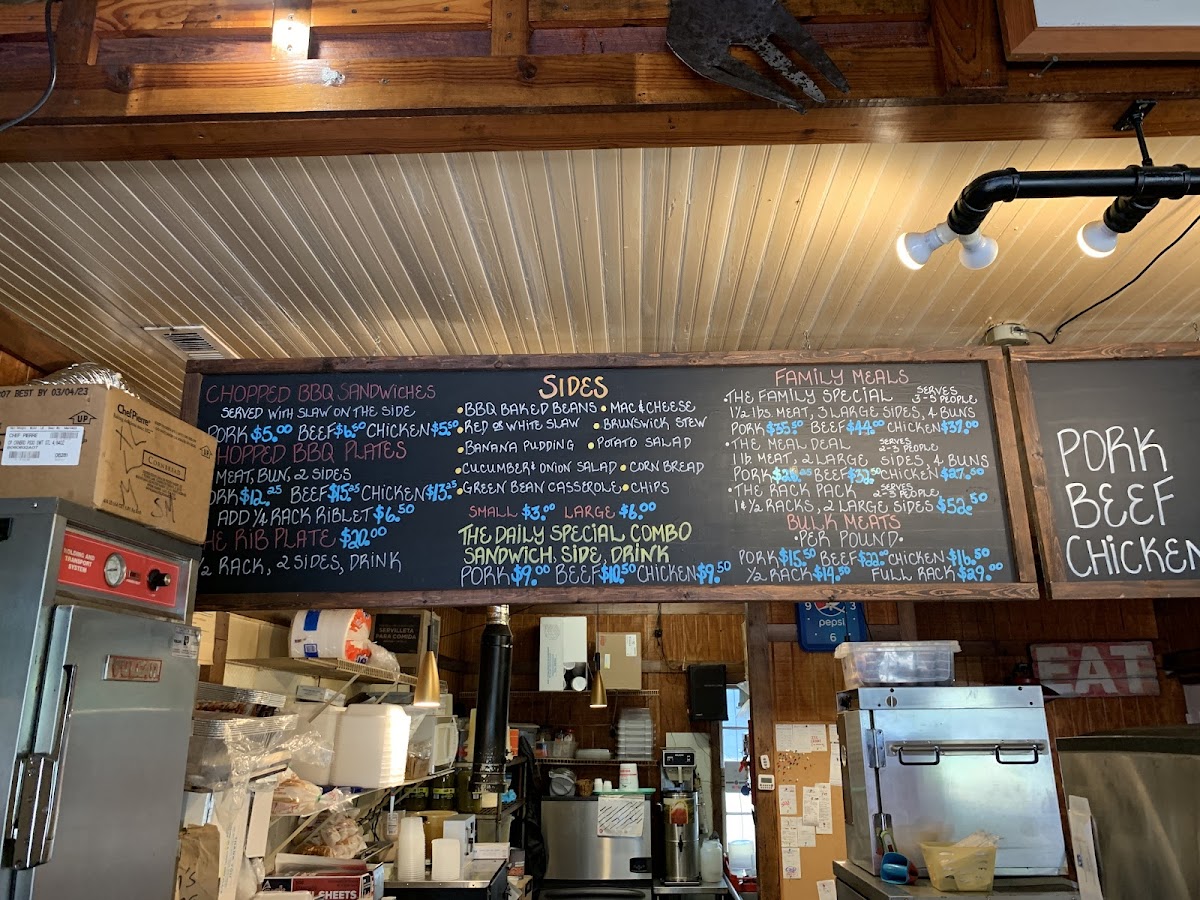 07 BEST BY 03/04/23
UP
Chef Pierre
CHEF PIERRE
CORNBREAD
UP
HOLDING AND
TRANSPORT
SYSTEM
CHOPPED BBQ SANDWICHES
SERVED WITH SLAW ON THE SIDE
PORK $5.00 BEEF $6.50 CHICKEN $5.50
HOPPED BBQ PLATES
MEAT, BUN, 2 SIDES
ORK $12.25 BEEF $15.25 CHICKEN $13.25
ADD 1/4 RACK RIBLET $6.50
HE RIB PLATE $20.00
2 RACK, 2 SIDES, DRINK
SIDES
•BBQ BAKED BEANS •MAC & CHEESE
•RED OR WHITE SLAW •BRUNSWICK STEW
•BANANA PUDDING •POTATO SALAD
•CUCUMBER & ONION SALAD •CORN BREAD
•GREEN BEAN CASSEROLE •CHIPS
SMALL $3.00 LARGE $6.00
THE DAILY SPECIAL COMBO
SANDWICH, SIDE, DRINK
PORK $9.00 BEEF $10.50 CHICKEN $9.50
FAMILY MEALS
•THE FAMILY SPECIAL SERVES 3-5 PEOPLE
1 1/2 lbs MEAT, 3 LARGE SIDES, 4 BUNS
PORK $35.50 BEEF $44.00 CHICKEN $37.00
•THE MEAL DEAL SERVES 2-3 PEOPLE
1 lb MEAT, 2 LARGE SIDES, 4 BUNS
PORK BEEF CHICKEN $27.50
•THE RACK PACK SERVES 2-3 PEOPLE
1 1/2 RACKS, 2 LARGE SIDES $52.50
BULK MEATS
•PER POUND•
PORK $15.50 BEEF $22.00 CHICKEN $16.50
1/2 RACK $19.50 FULL RACK $29.00
PORK
BEEF
CHICKEN
SERVILLETA
PARA COMIDA
9 3
pepsi
6
EAT
SHEETS